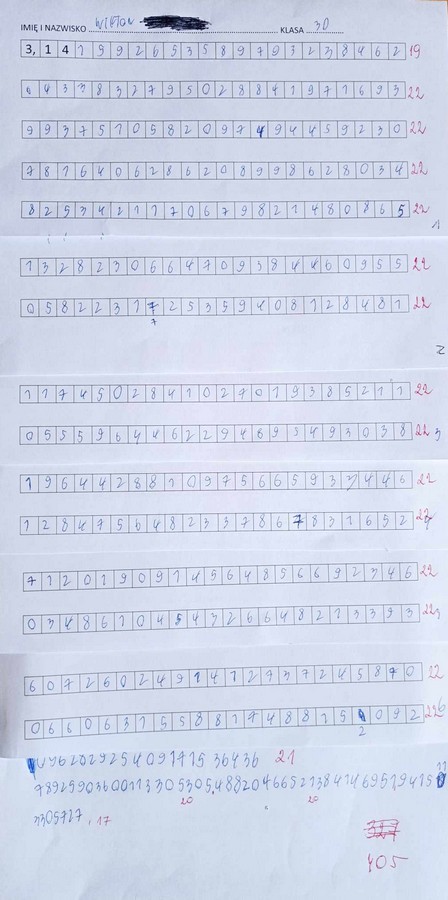 IMIĘ I NAZWISKO WIKTOR KLASA 3D
3,141592653589793238462 19
6433832795028841971693 22
9937510582097494459230 22
7816406286208998628034 22
8253421170679821480865 22
1
1328230664709384460955 22
0582231725359408128481 22
7
2
1174502841027019385211 22
0555964462294895493038 22 3
1964428810975665933446 22
1284756482337867831652 22
7120190914564856692346 22
0348610454326648213393 22 3
6072602491412737245870 22
0660631558817488152092 22 6
2
4962829254091715 36436 21
7892590360011330530548820466521384146951941511
20 20
3305727, 17
405